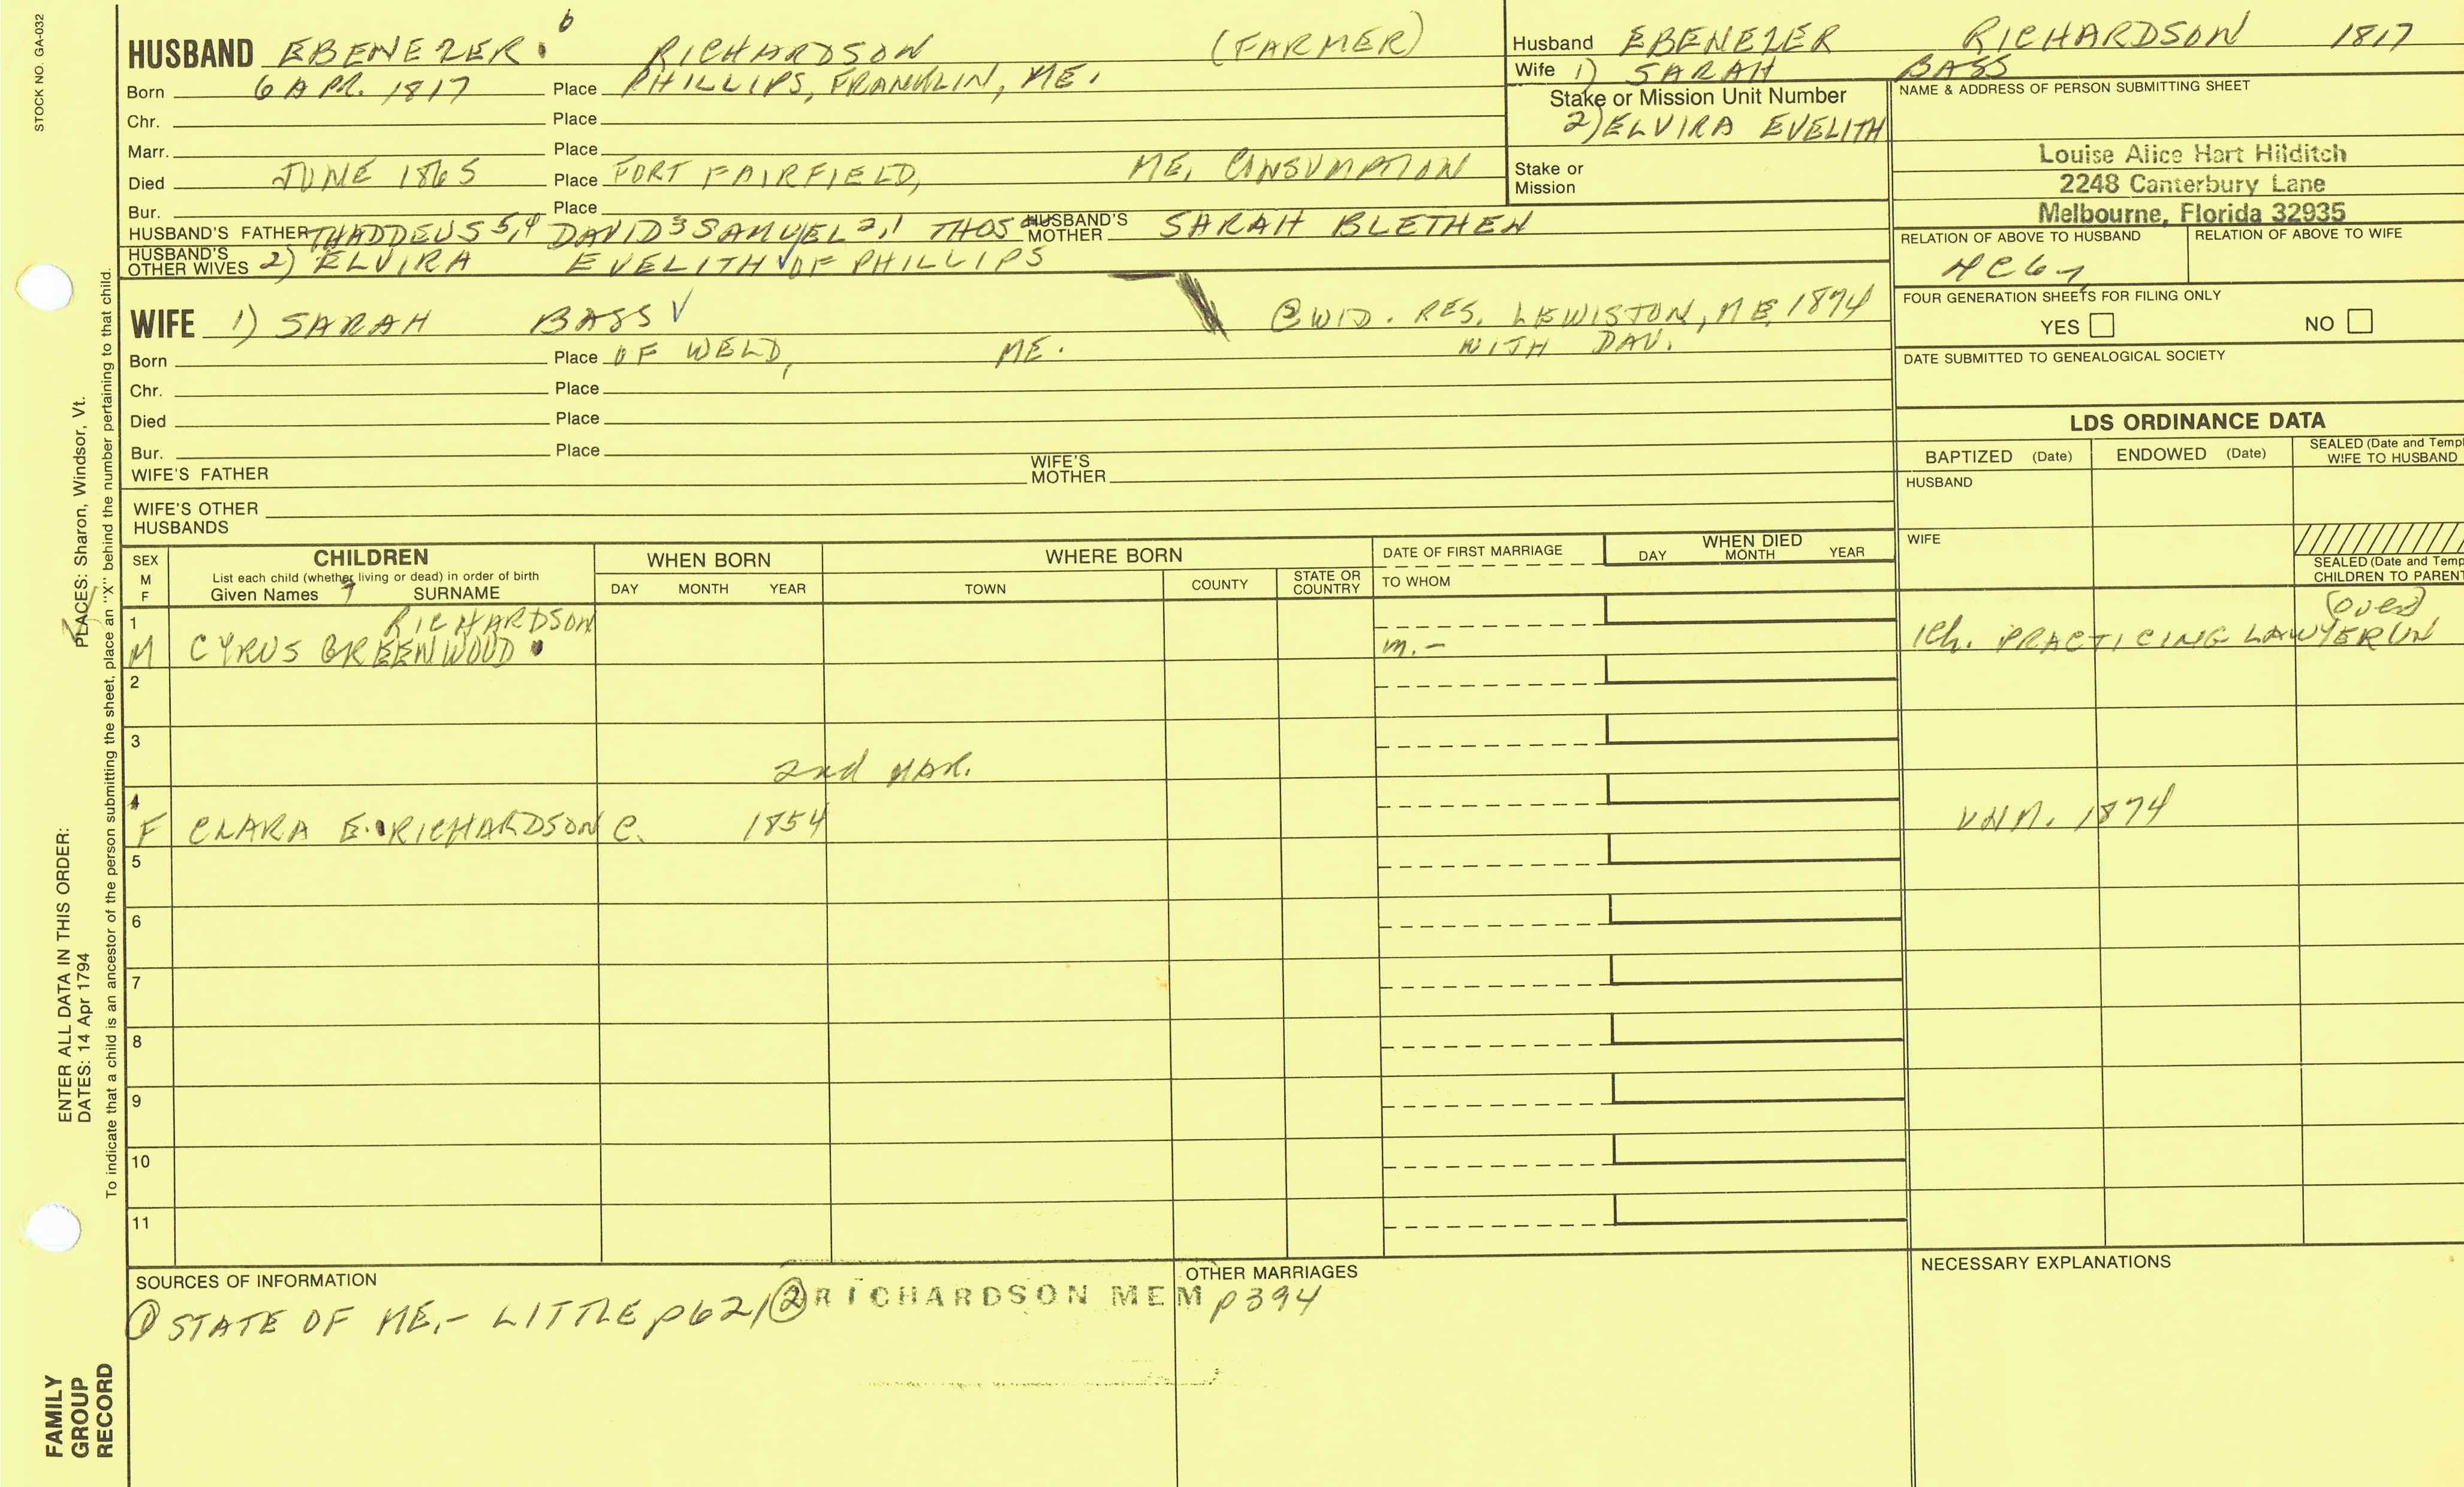 STOCK NO. GA-032
HUSBAND EBENEZER 6 RICHARDSON (FARMER)
Born 6 APR. 1817 Place PHILLIPS, FRANKLIN, ME.
Chr. Place
Marr. Place
Died JUNE 1865 Place FORT FAIRFIELD, ME. CONSUMPTION
Bur. Place
HUSBAND'S FATHER THADDEUS 5,4 DAVID 3 SAMUEL 2,1 THOS HUSBAND'S MOTHER SARAH BLETHEN
HUSBAND'S OTHER WIVES 2) ELVIRA EVELITH OF PHILLIPS
WIFE 1) SARAH BASS ② WID. RES. LEWISTON, ME. 1874
WITH DAU.
Born Place OF WELD, ME.
Chr. Place
Died Place
Bur. Place
WIFE'S FATHER WIFE'S MOTHER
WIFE'S OTHER HUSBANDS
Husband EBENEZER RICHARDSON 1817
Wife 1) SARAH BASS
Stake or Mission Unit Number
2) ELVIRA EVELITH
Stake or Mission
NAME & ADDRESS OF PERSON SUBMITTING SHEET
Louise Alice Hart Hilditch
2248 Canterbury Lane
Melbourne, Florida 32935
RELATION OF ABOVE TO HUSBAND RELATION OF ABOVE TO WIFE
FOUR GENERATION SHEETS FOR FILING ONLY
YES NO
DATE SUBMITTED TO GENEALOGICAL SOCIETY
LDS ORDINANCE DATA
BAPTIZED (Date) ENDOWED (Date) SEALED (Date and Templ
WIFE TO HUSBAND
HUSBAND
WIFE
SEALED (Date and Temp
CHILDREN TO PARENT
SEX M F CHILDREN WHEN BORN WHERE BORN DATE OF FIRST MARRIAGE WHEN DIED
List each child (whether living or dead) in order of birth
Given Names SURNAME DAY MONTH YEAR TOWN COUNTY STATE OR COUNTRY TO WHOM DAY MONTH YEAR
(over)
1 RICHARDSON
M CYRUS GREENWOOD m.- 1ch. PRACTICING LAWYER IN
2
3
2nd MAR.
4
F CLARA E. RICHARDSON C. 1854 UNM. 1874
5
6
7
8
9
10
11
SOURCES OF INFORMATION
OTHER MARRIAGES
NECESSARY EXPLANATIONS
① STATE OF ME.- LITTLE p621 ② RICHARDSON MEM p394
PLACES: Sharon, Windsor, Vt.
To indicate that a child is an ancestor of the person submitting the sheet, place an "X" behind the number pertaining to that child.
ENTER ALL DATA IN THIS ORDER:
DATES: 14 Apr 1794
FAMILY
GROUP
RECORD